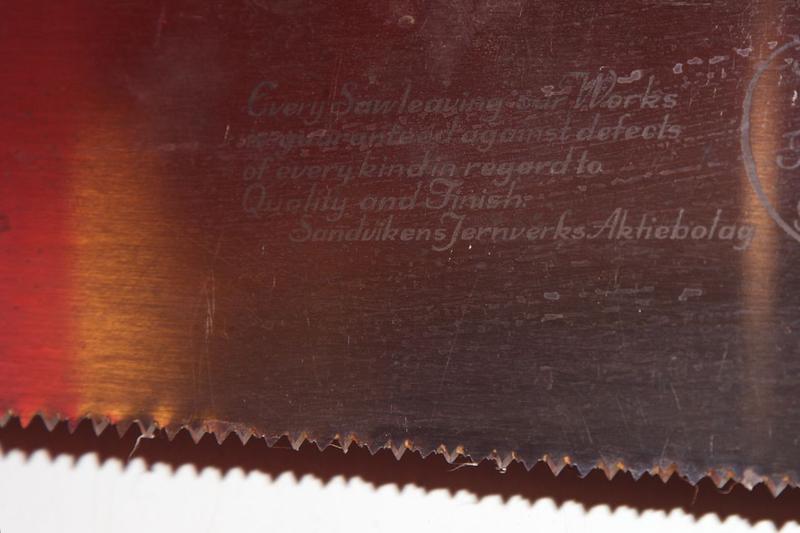 Every Saw leaving our Works
is guaranteed against defects
of every kind in regard to
Quality and Finish:
Sandvikens Jernverks Aktiebolag